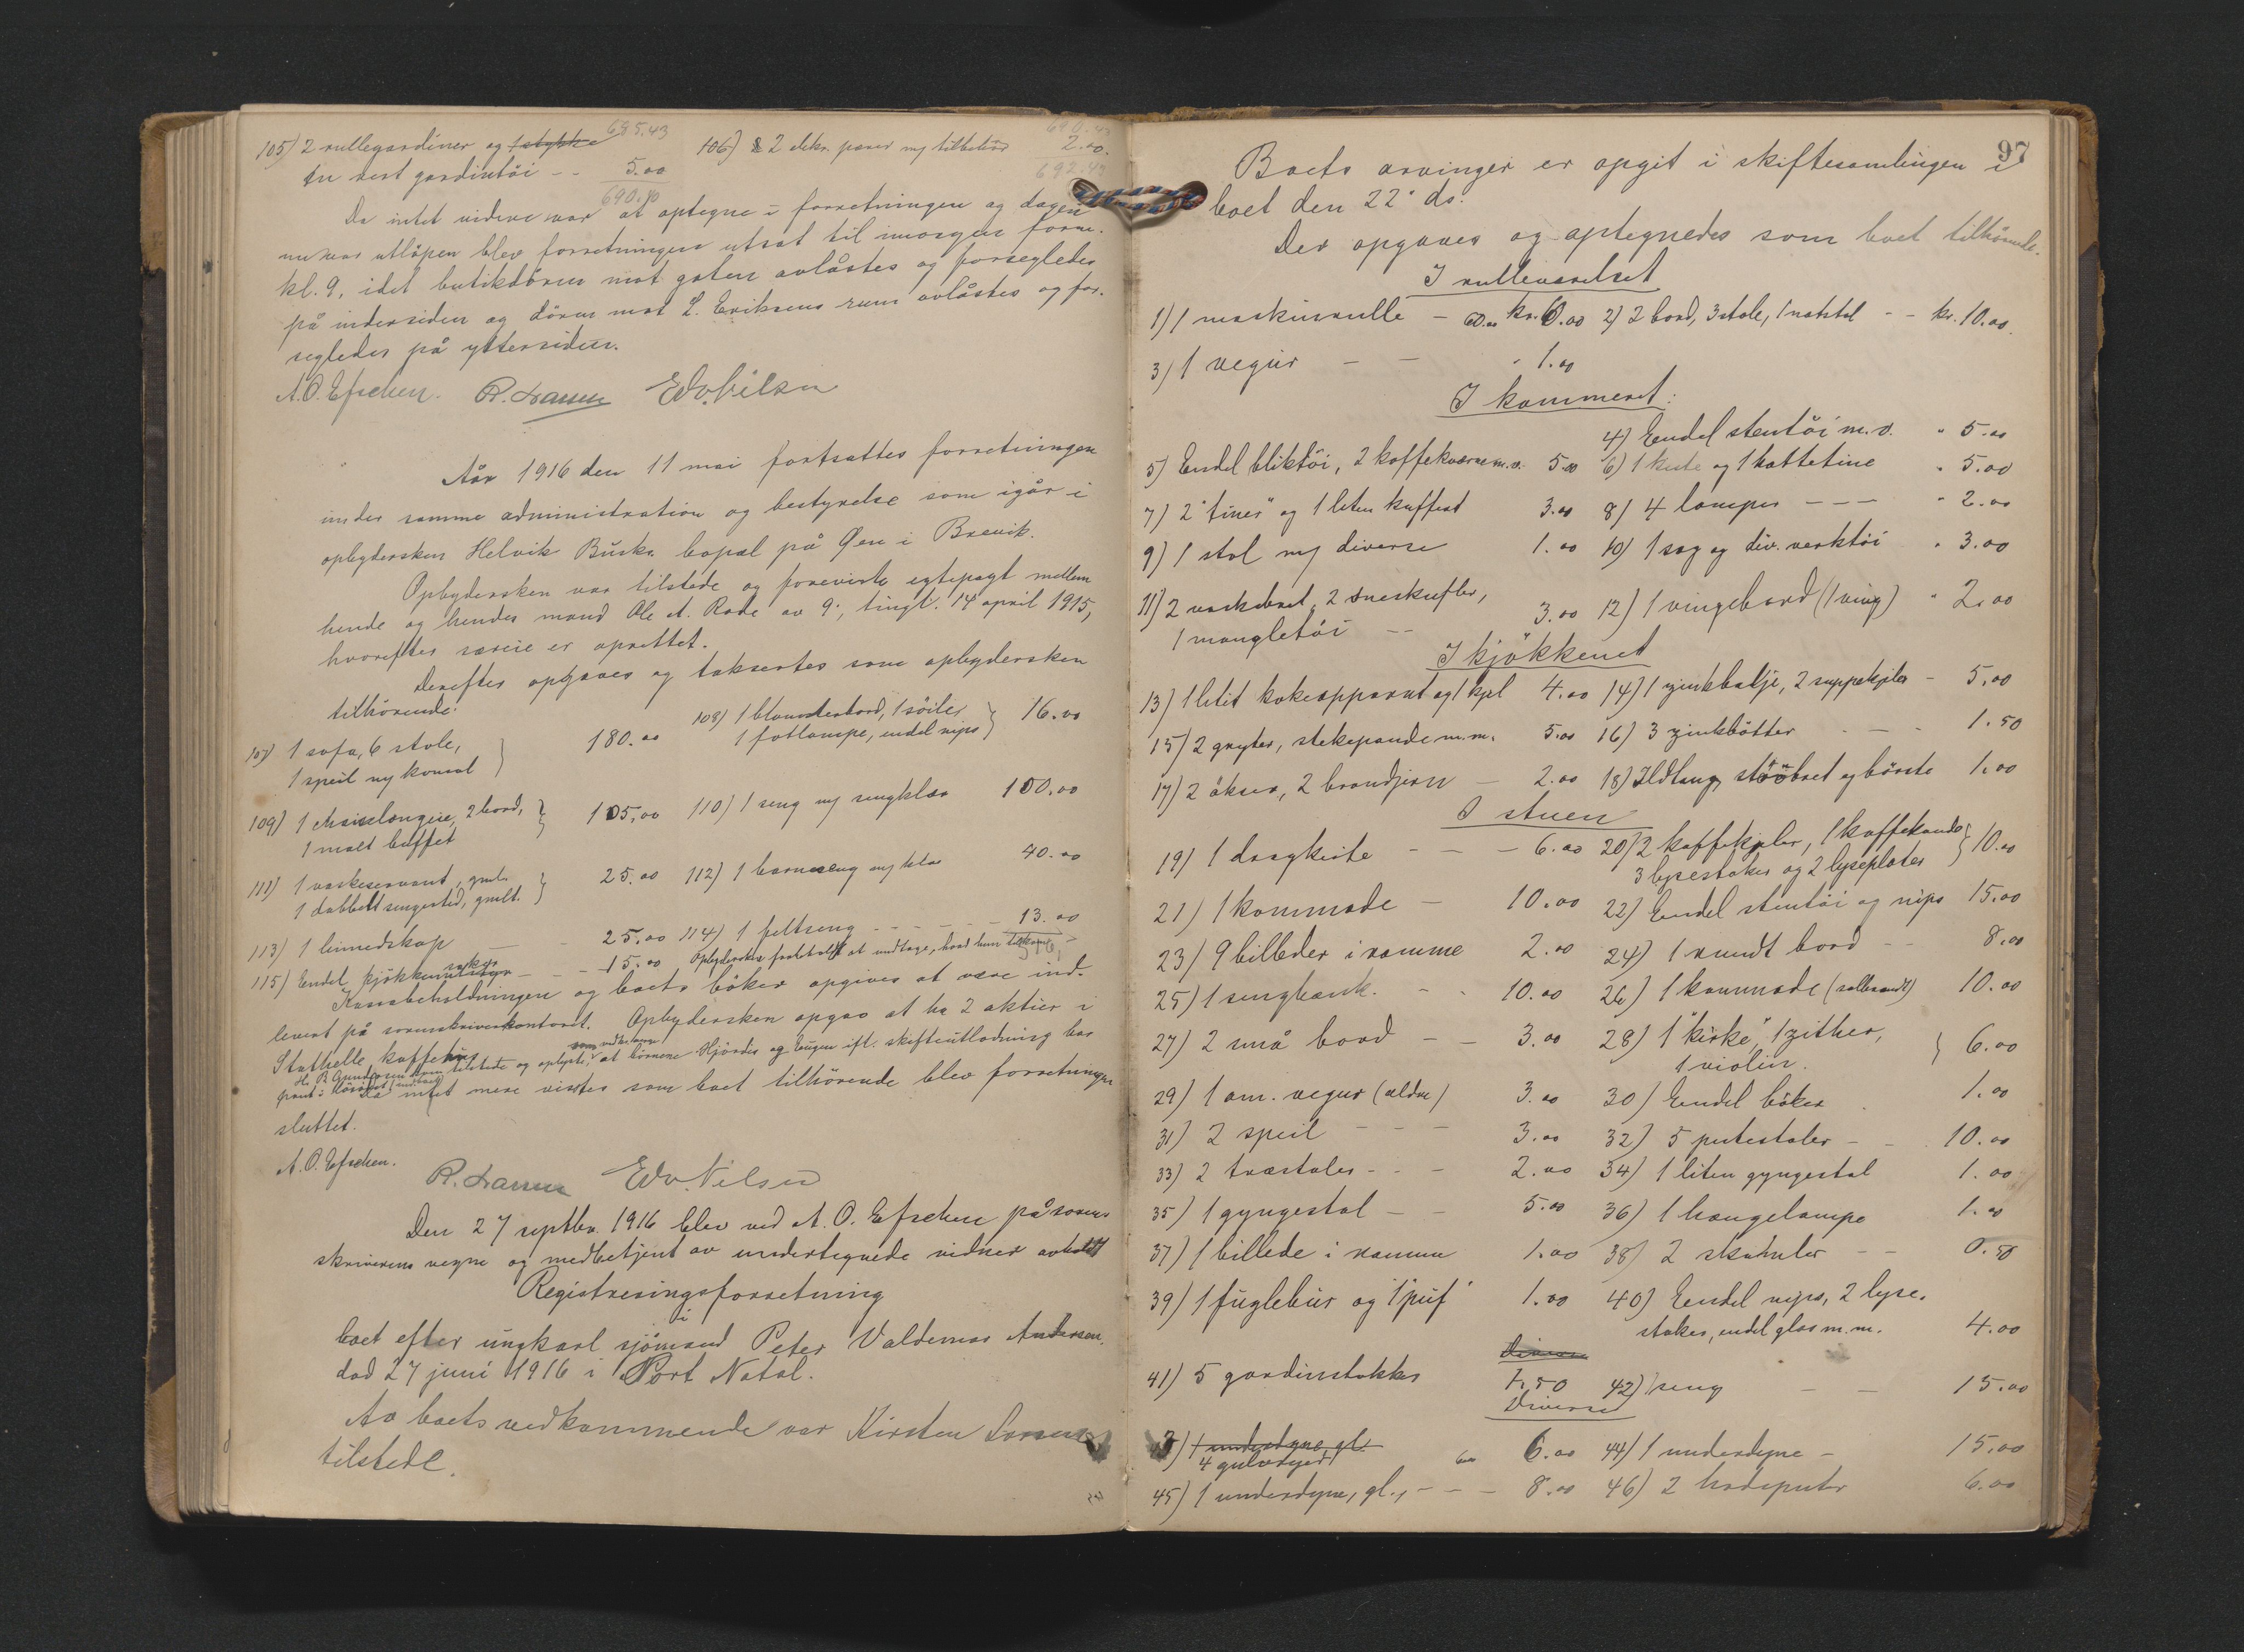 105) 2 rullegardiner og 1 stykke
en rest gardintöi - - 5.00
685.43
690.43
106) 2 elektr. pærer m/ tilbehör 2.00
690.43
692.43
Da intet videre var at optegne i forretningen og dagen
nu var utlöpen blev forretningen utsat til imorgen form.
kl. 9, idet butikdören mot gaten avlåstes og forsegledes
på indersiden og dören mot L. Eriksens rum avlåstes og for-
segledes på yttersiden.
A. O. Efschen. R. Larsen Edv. Nilsen
År 1916 den 11 mai fortsattes forretningen
under samme administration og bestyrelse som igår i
opbydersken Helvik Buska bopæl på Øen i Brevik.
Opbydersken var tilstede og foreviste egtepagt mellem
hende og hendes mand Ole A. Rode av 9', tingl. 14 april 1915,
hvorefter særeie er oprettet.
Derefter opgaves og taksertes som opbydersken
tilhörende:
107) 1 sofa, 6 stole,
1 speil m/ konsol } 180.00
108) 1 blomsterbord, 1 söiler
1 fotlampe, endel nips } 16.00
109) 1 chaiselongue, 2 bord,
1 malt buffet } 105.00
110) 1 seng m/ sengklær 100.00
111) 1 vaskeservant, gml.
1 dobbelt sengested, gmlt. } 25.00
112) 1 barneseng m/ klær 40.00
113) 1 linnedskap - - 25.00
114) 1 feltseng - - - - 13.00
115) Endel kjökkensaker - - - 15.00
Opbydersken forbeholdt at undtage, hvad hun tilkom
Kassabeholdningen og boets böker opgives at være ind-
levert på sorenskriverkontoret. Opbydersken opgav at ha 2 aktier i
Stathelle kaffehus
Hr. B. Gundersen kom tilstede og oplyste, som vedkommer at börnene Hjördis og Eugen ifl. skifteutlodning har
pant i lösöret / indboet
Da intet mere vistes som boet tilhörende blev forretningen
sluttet.
A. O. Efschen.
R. Larsen Edv. Nilsen
Den 27 septbr. 1916 blev ved A. O. Efschen på soren-
skriverens vegne og medbetjent av undertegnede vidner avholdt
Registreringsforretning
i
boet efter ungkarl sjömand Peter Valdemar Andersen,
död 27 juni 1916 i Port Natal.
Av boets vedkommende var Kirsten Larsen
tilstede.
97
Boets arvinger er opgit i skiftesamlingen i
boet den 22' ds.
Der opgaves og optegnedes som boet tilhörende.
I rulleværelset
1) 1 maskinrulle - 60.00 kr. 60.00 2) 2 bord, 3 stole, 1 natstol - - kr. 10.00
3) 1 vegur - - " 1.00
I kammeret:
4) Endel stentöi m.v. " 5.00
5) Endel bliktöi, 2 kaffekværne m.v. 5.00 6) 1 kiste og 1 hattetine " 5.00
7) 2 "tiner" og 1 liten kuffert 3.00 8) 4 lamper - - - " 2.00
9) 1 stol m/ diverse 1.00 10) 1 sag og div. verktöi " 3.00
11) 2 vaskebret, 2 sneskufler,
1 mangletöi - - 3.00 12) 1 vingebord (1 ving) " 2.00
I kjökkenet
13) 1 litet kokeapparat og 1 kjel 4.00 14) 1 zinkbalje, 2 suppekjeler - 5.00
15) 2 gryter, stekepande m.m. 5.00 16) 3 zinkbötter - - - 1.50
17) 2 økser, 2 brandjern - 2.00 18) Ildtang, stövbret og börste 1.00
I stuen
19) 1 dragkiste - - - 6.00 20) 2 kaffekjeler, 1 kaffekande
3 lysestaker og 2 lyseplater } 10.00
21) 1 kommode - 10.00 22) Endel stentöi og nips 15.00
23) 9 billeder i ramme 2.00 24) 1 rundt bord - - 8.00
25) 1 sengbænk. - - 10.00 26) 1 kommode (valbrandt) 10.00
27) 2 små bord - - 3.00 28) 1 "kirke", 1 zither,
1 violin. } 6.00
29) 1 am. vegur (ældre) 3.00 30) Endel böker 1.00
31) 2 speil - - - 3.00 32) 5 putestoler - - 10.00
33) 2 træstoler - - - 2.00 34) 1 liten gyngestol 1.00
35) 1 gyngestol - - 5.00 36) 1 hængelampe 1.00
37) 1 billede i ramme 1.00 38) 2 skamler - - 0.50
39) 1 fuglebur og 1 "puf" 1.00 40) Endel nips, 2 lyse-
staker, endel glas m.m. 4.00
Diverse
41) 5 gardinstokker 1.50 42) 1 seng - - 15.00
Diverse
43) 1 underdyne, gl.
4 gulvtyer 6.00 44) 1 underdyne - 15.00
45) 1 underdyne, gl., - - - 8.00 46) 2 hodeputer 6.00